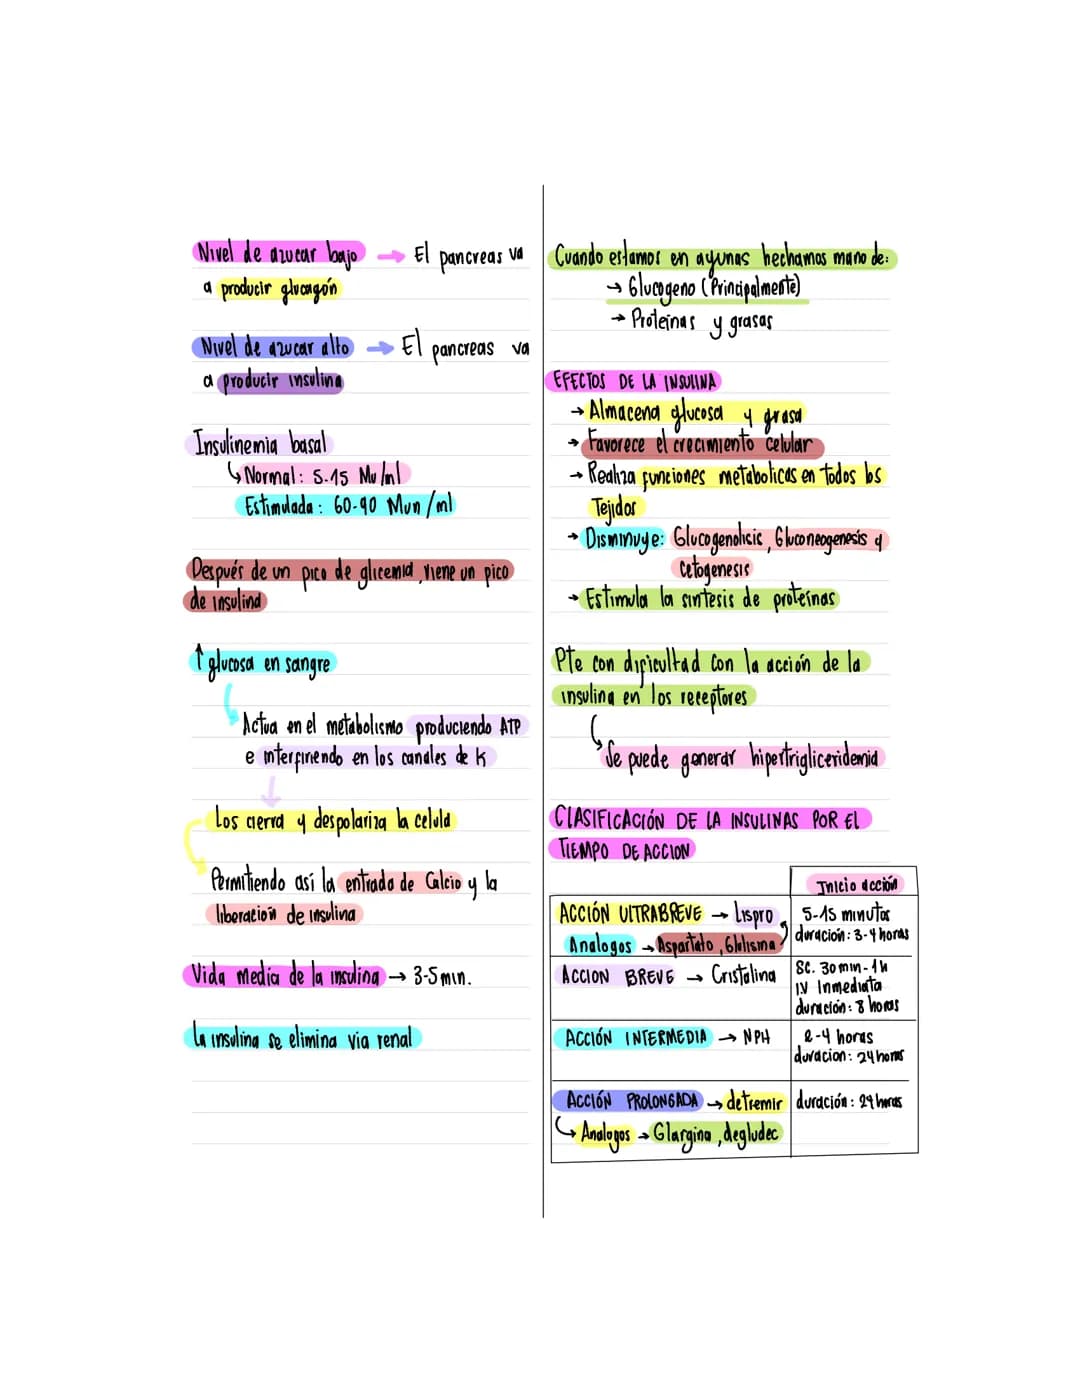 Nivel de azucar bajo → El pancreas va
a producir glucagón
Nivel de azucar alto → El pancreas va
a producir insulina
Insulinemia basal
↳ Normal: 5-15 Mu/ml
Estimulada: 60-90 Mun/ml
Después de un pico de glicemia, viene un pico
de insulina
↑ glucosa en sangre
Actua en el metabolismo produciendo ATP
e interfiriendo en los canales de K
Los cierra y despolariza la celula
Permitiendo así la entrada de Calcio y la
liberación de insulina
Vida media de la insulina → 3-5 min.
La insulina se elimina via renal
Cuando estamos en ayunas hechamos mano de:
→ Glucogeno (Principalmente)
→ Proteínas y grasas
EFECTOS DE LA INSULINA
→ Almacena glucosa y grasa
→ Favorece el crecimiento celular
→ Realiza funciones metabolicas en todos los
Tejidos
→ Disminuye: Glucogenolisis, Gluconeogenesis y
Cetogenesis
→ Estimula la sintesis de proteínas
Pte con dificultad con la acción de la
insulina en los receptores
Se puede generar hipertrigliceridemia
CLASIFICACIÓN DE LA INSULINAS POR EL
TIEMPO DE ACCION
Inicio acción
ACCIÓN ULTRABREVE → Lispro
Analogos → Aspartato, Glulisina
5-15 minutos
duración: 3-4 horas
ACCION BREVE → Cristalina
SC. 30 min-1h
I.V Inmediata
duración: 8 horas
ACCIÓN INTERMEDIA → NPH
2-4 horas
duracion: 24 horas
ACCIÓN PROLONGADA → detremir
↳ Analogos → Glargina, degludec
duración: 24 horas